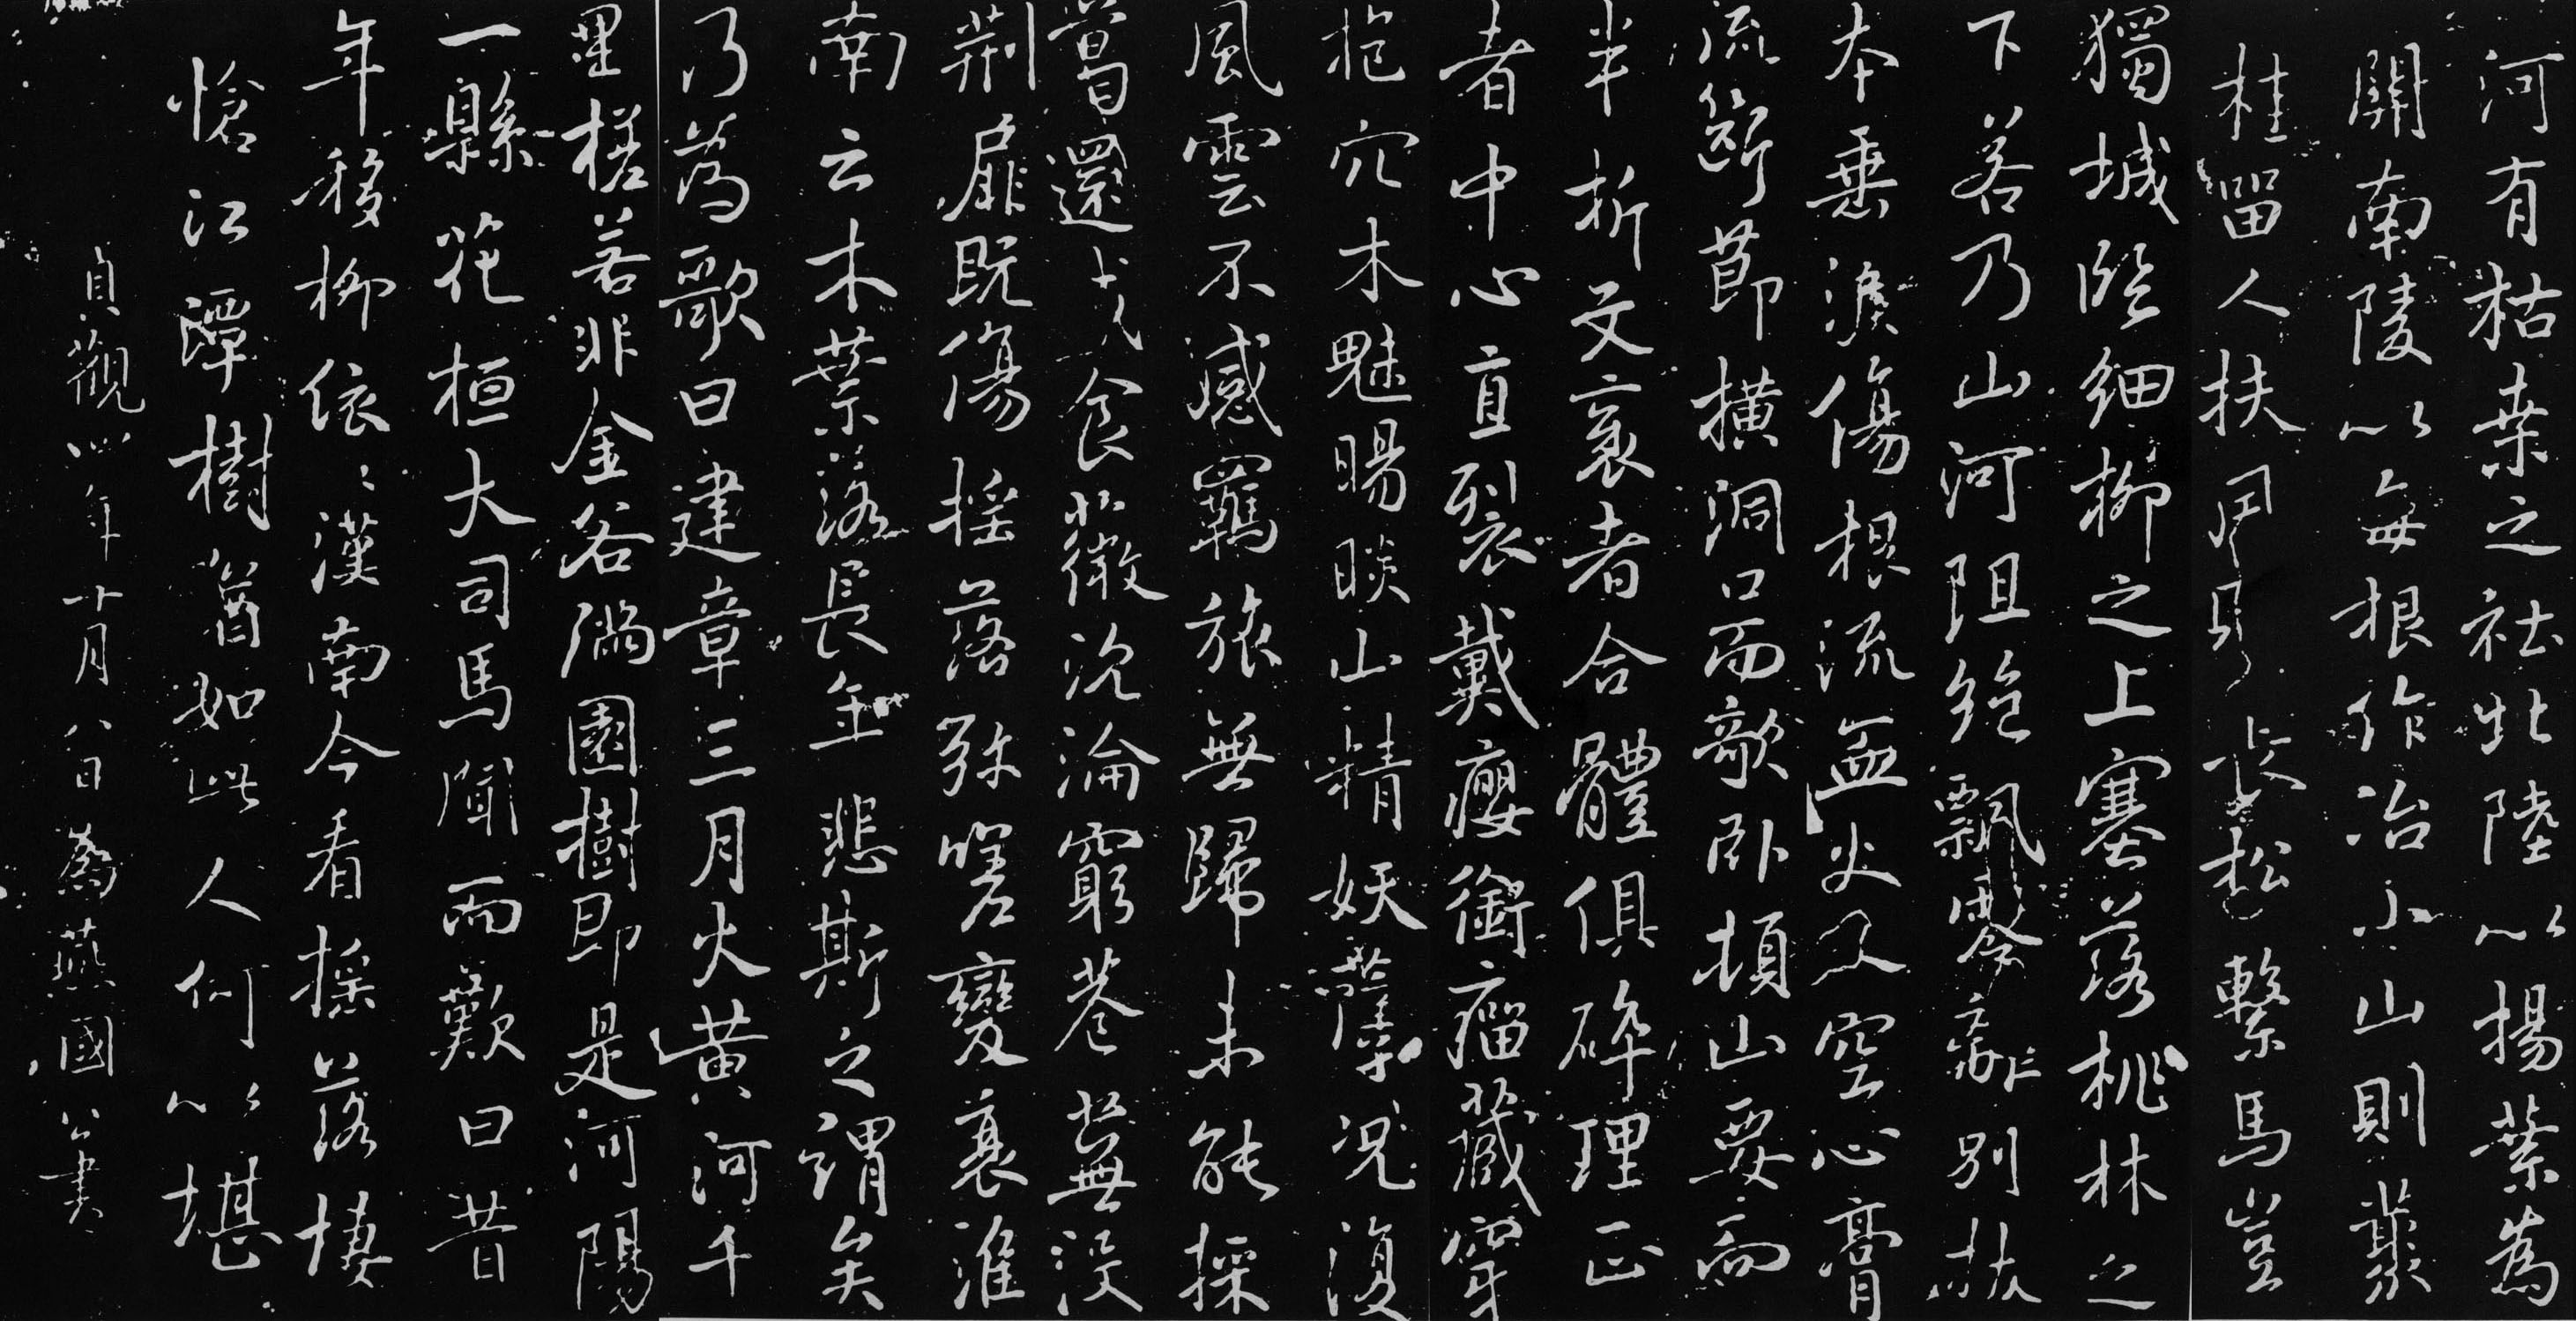 河有枯桒之社北陸以揚葉為
關南陵以每根作冶小山則叢
桂留人扶風長松繫馬豈
獨城臨細柳之上塞落桃林之
下若乃山河阻絶飄零離別拔
本垂淚傷根流血火入空心膏
流斷節横洞口而欹卧頓山要而
半折文衺者合體俱碎理正
者中心直裂戴癭銜瘤藏穿
抱穴木魅睗睒山精妖孽况復
風雲不感羈旅無歸未能採
葛還成食薇沉淪窮巷蕪没
荆扉既傷摇落弥嗟變衰淮
南云木葉落長年悲斯之謂矣
乃為歌曰建章三月火黄河千
里槎若非金谷滿園樹即是河陽
一縣花桓大司馬聞而歎曰昔
年移柳依〻漢南今看摇落悽
愴江潭樹猶如此人何以堪
貞觀四年十月八日為燕國公書